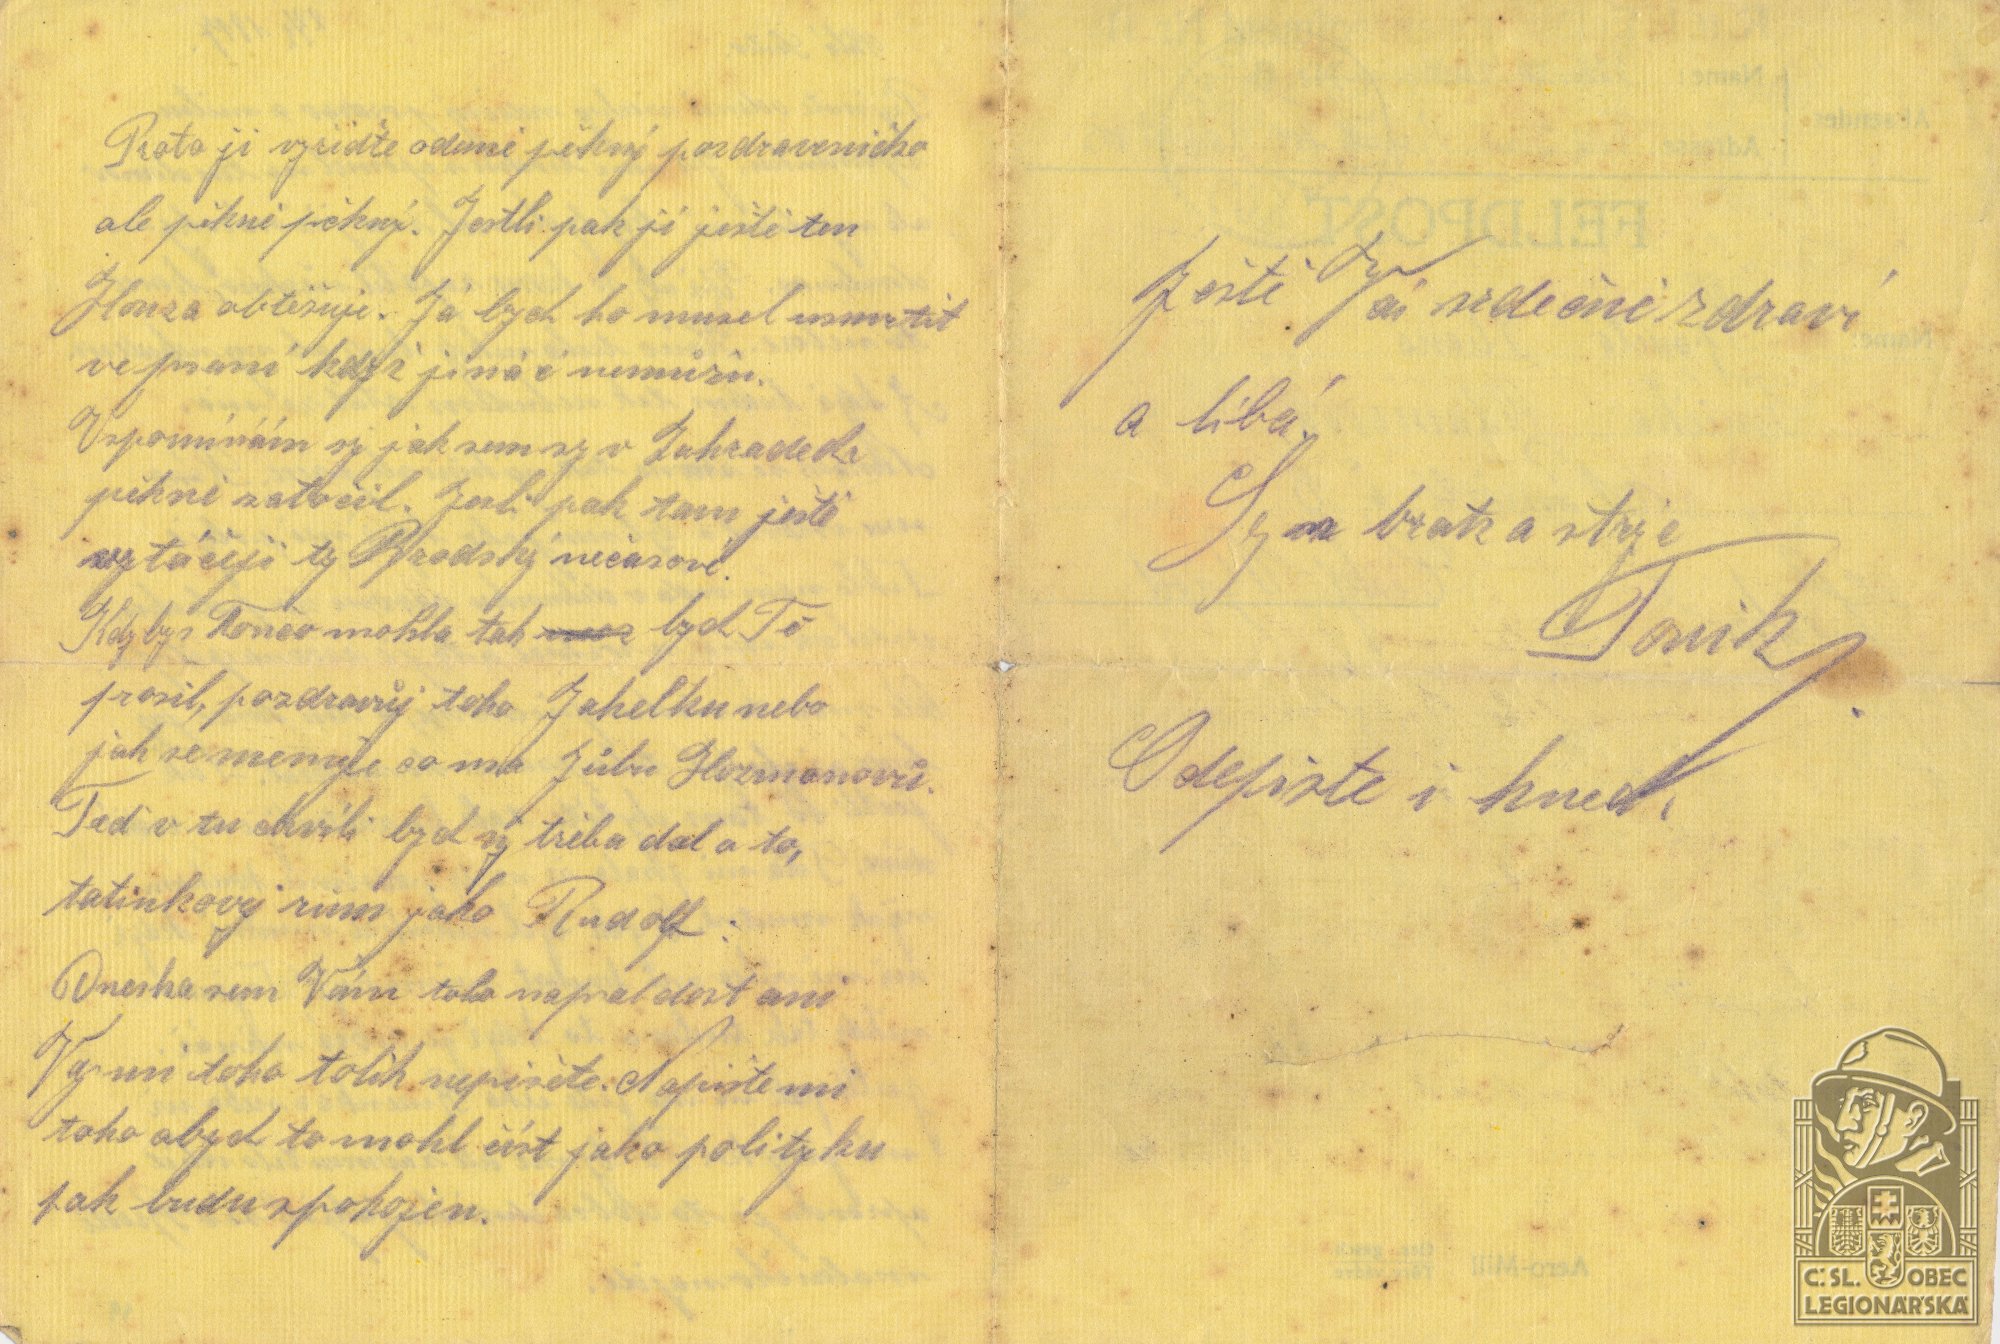 Proto ji vyřidťe odemě pěkný pozdraveníčko
ale pěkně pěkný. Jestli pak jí ještě ten
Honza obtěžuje. Já bych ho musel usmrtit
ve psaní když jináč nemůžu.
Vspomínám sy jak sem sy v Zahrádek
pěkně zatočil. Jesli pak tam ještě
vytáčejí ty Brodský nečasové.
Kdybys Tončo mohla tak bych Tě
prosil, pozdravůj toho Jakelku nebo
jak se menuje co má Júlu Hozmanovů.
Teď v tu chvíli bych sy třeba dal a to,
tatínkovy rum jako Rudolf.
Dneska sem Vám toho napsal dost ani
Vy mn toho tolik nepišěte. Napište mi
toho abych to mohl číst jako polityku
pak budu spokojen.
Ještě Vás srdečně zdraví
a líbá,
Syn bratr a strýc
Toník
Odepište i hned.
FELDPOST
Absender:
Name:
Adresse:
Name:
Aero-Mili
Č.SL. OBEC
LEGIONÁŘSKÁ